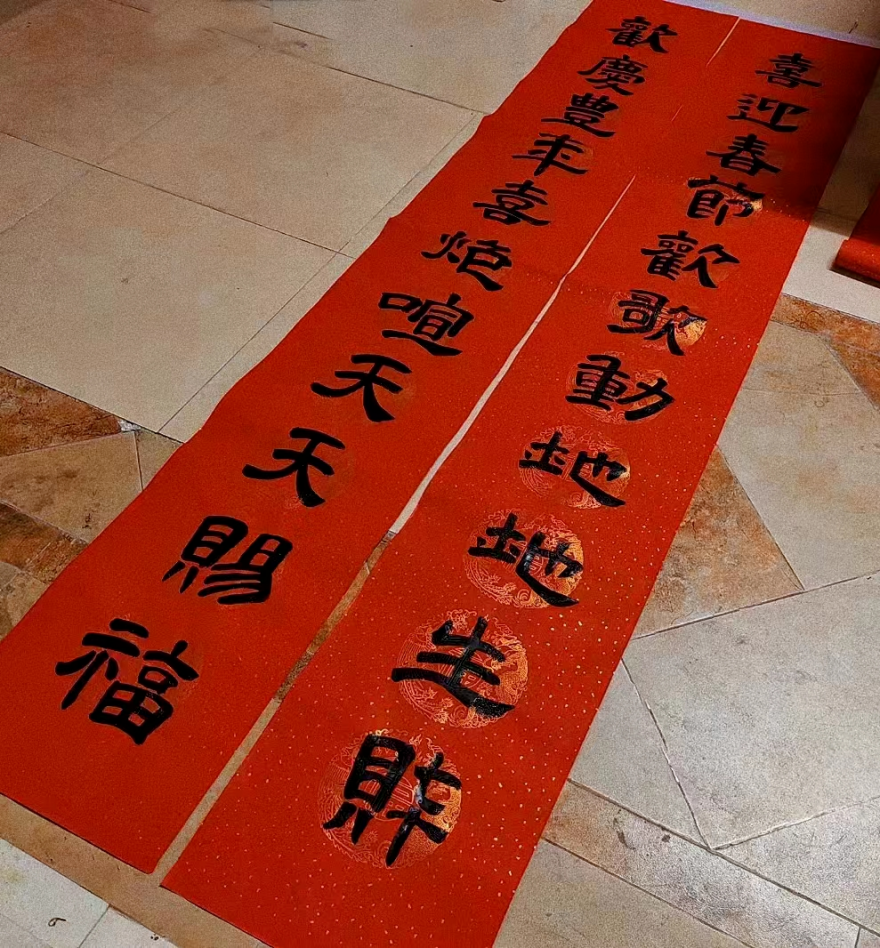 喜迎春節歡歌動地地生財
歡慶豊年喜炮喧天天賜福